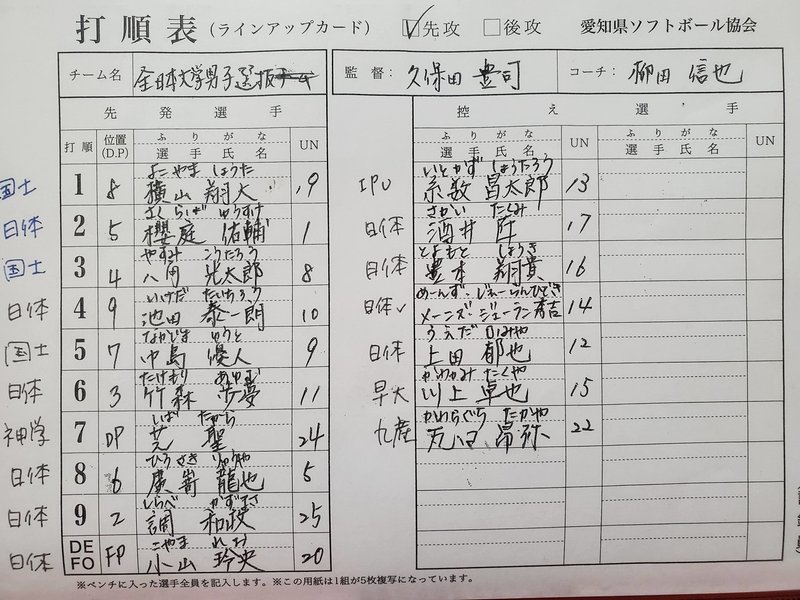 打順表(ラインアップカード) ✓先攻 □後攻 愛知県ソフトボール協会
チーム名 全日本大学男子選抜 監督: 久保田 豊司 コーチ: 柳田 信也
先発選手 控え選手
打順 位置(D.P) ふりがな 選手氏名 UN ふりがな 選手氏名 UN ふりがな 選手氏名 UN
よこやま しょうた いとかず しょうたろう
国士 1 8 横山 翔大 19 IPU 糸数 昌太郎 13
さくらば ゆうすけ さかい たくみ
日体 2 5 櫻庭 佑輔 1 日体 酒井 匠 17
やすみ こうたろう とよもと しょうき
国士 3 4 八角 光太郎 8 日体 豊本 翔貴 16
いけだ たいちろう めーんず・じぇーらんひでき
日体 4 9 池田 泰一朗 10 日体 メーンズ・ジェーラン秀吉 14
なかじま ゆうと うえだ ふみや
国士 5 7 中島 優人 9 日体 上田 郁也 12
たけもり あゆむ かわかみ たくや
日体 6 3 竹森 歩夢 11 早大 川上 卓也 15
いば たから かわらぐち たかや
神学 7 DP 聖 24 九産 瓦口 昂弥 22
ひろさき りゅうや
日体 8 6 廣嵜 龍也 5
しらべ かずまさ
日体 9 2 調 和政 25
こやま れお
日体 DEFO FP 小山 玲央 20
※ベンチに入った選手全員を記入します。※この用紙は1組が5枚複写になっています。